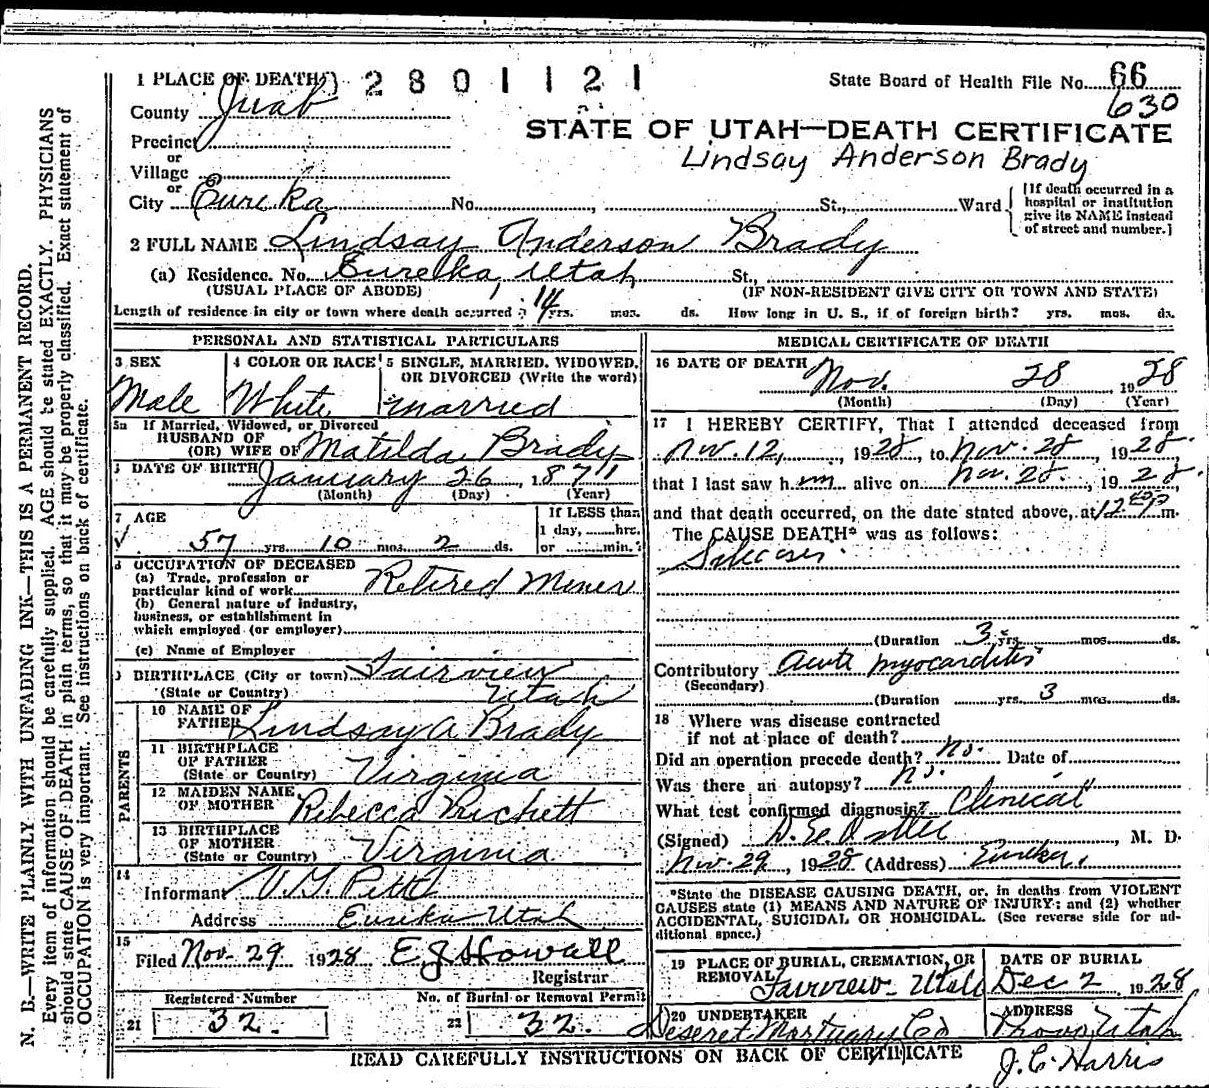 1 PLACE OF DEATH 2801121 State Board of Health File No. 66
630
County Juab
STATE OF UTAH—DEATH CERTIFICATE
Precinct
or
Lindsay Anderson Brady
Village
or
City Eureka No. , St., Ward [If death occurred in a hospital or institution give its NAME instead of street and number.]
2 FULL NAME Lindsay Anderson Brady
(a) Residence. No. Eureka, Utah St.,
(USUAL PLACE OF ABODE) (IF NON-RESIDENT GIVE CITY OR TOWN AND STATE)
Length of residence in city or town where death occurred 14 yrs. mos. ds. How long in U. S., if of foreign birth? yrs. mos. ds.
PERSONAL AND STATISTICAL PARTICULARS
3 SEX 4 COLOR OR RACE 5 SINGLE, MARRIED, WIDOWED, OR DIVORCED (Write the word)
Male White married
5a If Married, Widowed, or Divorced
HUSBAND OF
(OR) WIFE OF Matilda Brady
DATE OF BIRTH January 26, 1871
(Month) (Day) (Year)
7 AGE If LESS than
1 day, hrs.
57 yrs. 10 mos. 2 ds. or min.?
OCCUPATION OF DECEASED
(a) Trade, profession or
particular kind of work Retired Miner
(b) General nature of industry,
business, or establishment in
which employed (or employer)
(c) Name of Employer
BIRTHPLACE (City or town) Fairview
(State or Country) Utah
PARENTS
10 NAME OF
FATHER Lindsay A Brady
11 BIRTHPLACE
OF FATHER
(State or Country) Virginia
12 MAIDEN NAME
OF MOTHER Rebecca
13 BIRTHPLACE
OF MOTHER
(State or Country) Virginia
14
Informant
Address Eureka Utah
15
Filed Nov. 29 1928 E J Howell
Registrar
Registered Number No. of Burial or Removal Permit
21 32. 22 32.
MEDICAL CERTIFICATE OF DEATH
16 DATE OF DEATH Nov. 28 1928
(Month) (Day) (Year)
17 I HEREBY CERTIFY, That I attended deceased from
Nov. 12, 1928, to Nov. 28, 1928.
that I last saw him alive on Nov. 28., 1928,
and that death occurred, on the date stated above, at 12 m.
The CAUSE DEATH* was as follows:
(Duration 3 yrs. mos. ds.
Contributory Acute myocarditis
(Secondary)
(Duration yrs. 3 mos. ds.
18 Where was disease contracted
if not at place of death?
Did an operation precede death? no. Date of
Was there an autopsy? no.
What test confirmed diagnosis? Clinical
(Signed) , M. D.
Nov. 29, 1928 (Address) Eureka.
*State the DISEASE CAUSING DEATH, or, in deaths from VIOLENT
CAUSES state (1) MEANS AND NATURE OF INJURY; and (2) whether
ACCIDENTAL, SUICIDAL OR HOMICIDAL. (See reverse side for ad-
ditional space.)
19 PLACE OF BURIAL, CREMATION, OR DATE OF BURIAL
REMOVAL Fairview Utah Dec 2, 1928
20 UNDERTAKER ADDRESS
Deseret Mortuary Co Provo, Utah
READ CAREFULLY INSTRUCTIONS ON BACK OF CERTIFICATE
J. C. Harris
N. B.—WRITE PLAINLY WITH UNFADING INK—THIS IS A PERMANENT RECORD.
Every item of information should be carefully supplied. AGE should be stated EXACTLY. PHYSICIANS
should state CAUSE OF DEATH in plain terms, so that it may be properly classified. Exact statement of
OCCUPATION is very important. See instructions on back of certificate.